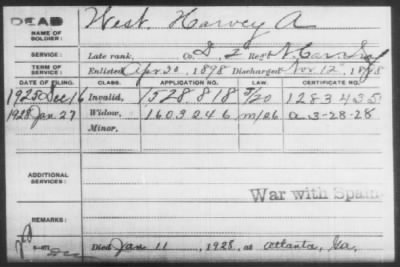 DEAD
NAME OF SOLDIER: West, Harvey A
SERVICE: Late rank, Co. D, 2 Reg't N. Car. Inf
TERM OF SERVICE: Enlisted Apr. 30, 1898 Discharged Nov. 12, 1898
DATE OF FILING. CLASS. APPLICATION NO. LAW. CERTIFICATE NO.
1925 Dec 16 Invalid, 1528.818 5/20 1283435
1928 Jan. 27 Widow, 1603246 m/26 a 3-28-28
Minor,
ADDITIONAL SERVICES:
War with Spain
REMARKS:
Died Jan 11, 1928, at Atlanta, Ga.